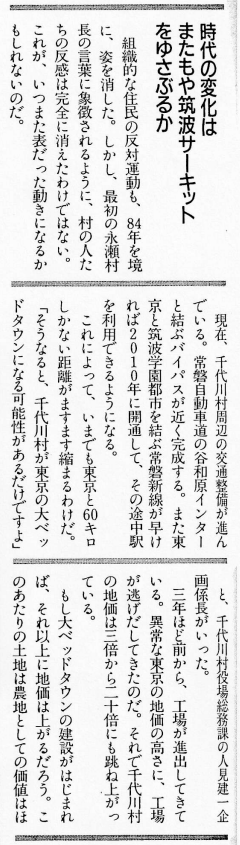 時代の変化は
またもや筑波サーキット
をゆさぶるか
　組織的な住民の反対運動も、84年を境
に、姿を消した。しかし、最初の永瀬村
長の言葉に象徴されるように、村の人た
ちの反感は完全に消えたわけではない。
これが、いつまた表だった動きになるか
もしれないのだ。
　現在、千代川村周辺の交通整備が進ん
でいる。常磐自動車道の谷和原インター
と結ぶバイパスが近く完成する。また東
京と筑波学園都市を結ぶ常磐新線が早け
れば2010年に開通して、その途中駅
を利用できるようになる。
　これによって、いまでも東京と60キロ
しかない距離がますます縮まるわけだ。
「そうなると、千代川村が東京の大ベッ
ドタウンになる可能性があるだけですよ」
　と、千代川村役場総務課の人見建一企
画係長がいった。
　三年ほど前から、工場が進出してきて
いる。異常な東京の地価の高さに、工場
が逃げだしてきたのだ。それで千代川村
の地価は三倍から二十倍にも跳ね上がっ
ている。
　もし大ベッドタウンの建設がはじまれ
ば、それ以上に地価は上がるだろう。こ
のあたりの土地は農地としての価値はほ